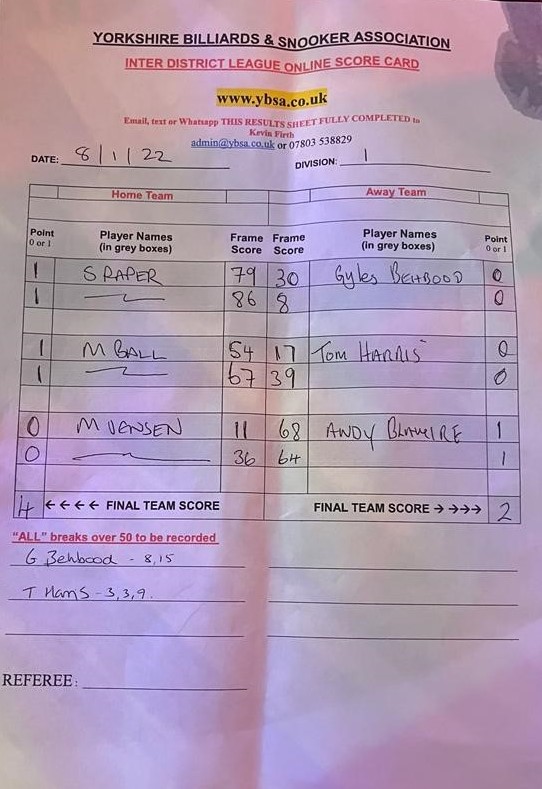 YORKSHIRE BILLIARDS & SNOOKER ASSOCIATION
INTER DISTRICT LEAGUE ONLINE SCORE CARD
www.ybsa.co.uk
Email, text or Whatsapp THIS RESULTS SHEET FULLY COMPLETED to
Kevin Firth
admin@ybsa.co.uk or 07803 538829
DATE: 8/1/22 DIVISION: 1
Home Team Away Team
Point 0 or 1 Player Names (in grey boxes) Frame Score Frame Score Player Names (in grey boxes) Point 0 or 1
1 S RAPER 79 30 Gyles BEHBOOD 0
1 86 8 0
1 M BALL 54 17 TOM HARRIS 0
1 67 39 0
0 M JENSEN 11 68 ANDY 1
0 36 64 1
4 ←←←← FINAL TEAM SCORE FINAL TEAM SCORE →→→→ 2
"ALL" breaks over 50 to be recorded
G Behbood - 8,15
T Harris - 3,3,9.
REFEREE: